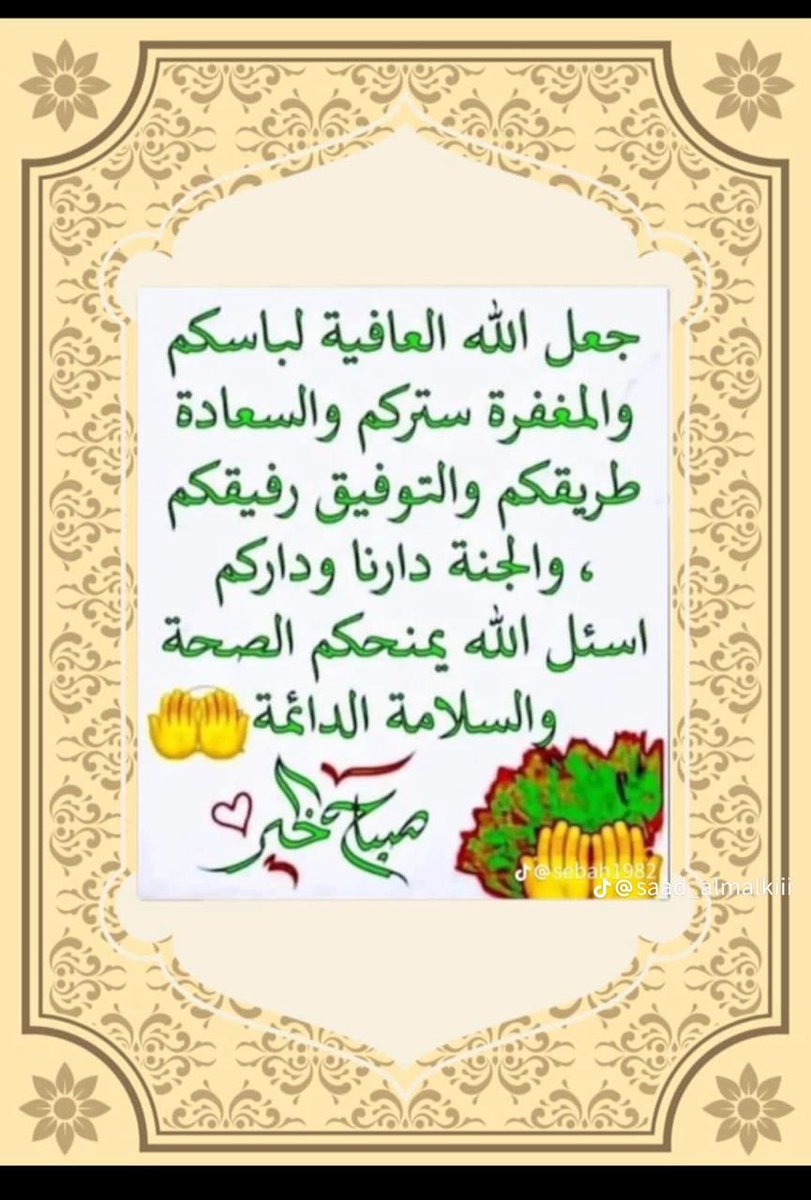 جعل الله العافية لباسكم
والمغفرة ستركم والسعادة
طريقكم والتوفيق رفيقكم
، والجنة دارنا وداركم
اسئل الله يمنحكم الصحة
والسلامة الدائمة
صباح الخير
@sebah1982
@saad_almalkiii